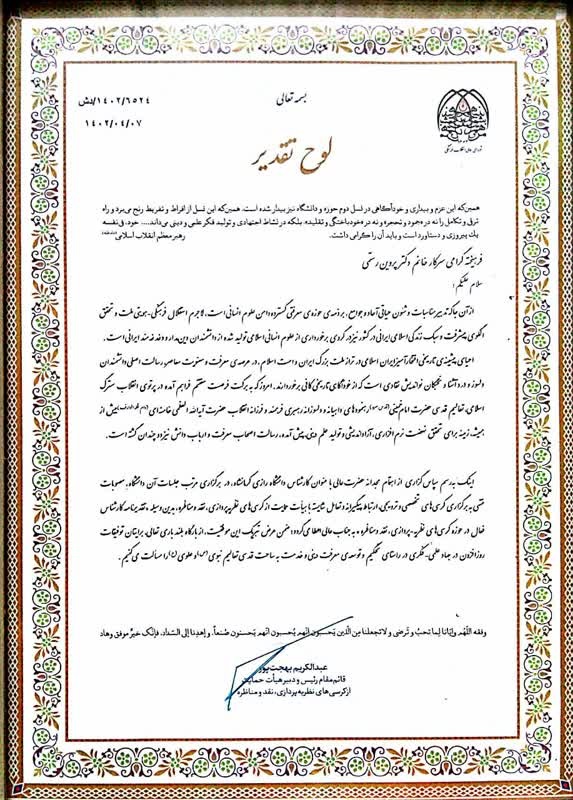 بسمه تعالی
۱۴۰۲/۶۵۲۴/دش
۱۴۰۲/۰۴/۰۷
لوح تقدیر
همین‌که این عزم و بیداری و خودآگاهی در نسل دوم حوزه و دانشگاه نیز بیدار شده است. همین‌که این نسل از افراط و تفریط رنج می‌برد و راه
ترقی و تکامل را نه در جمود و تحجر و نه در خودباختگی و تقلید، بلکه در نشاط اجتهادی و تولید فکر علمی و دینی می‌داند.... خود، فی‌نفسه
یک پیروزی و دستاورد است و باید آن را گرامی داشت. رهبر معظم انقلاب اسلامی
فرهیخته گرامی سرکار خانم دکتر پروین رستمی
سلام علیکم؛
از آن جا که تدبیر مناسبات و شئون حیاتی آحاد و جوامع، بر ذمه‌ی حوزه‌ی معرفتی گسترده دامن علوم انسانی است، لاجرم استقلال فرهنگی-هویتی ملت و تحقق
الگوی پیشرفت و سبک زندگی اسلامی ایرانی در کشور نیز در گروی برخورداری از علوم انسانی اسلامی تولید شده از دانشمندان دین‌مدار و دغدغه‌مند ایرانی است.
احیای پیشینه‌ی تاریخی افتخارآمیز ایران اسلامی در تراز ملت بزرگ ایران و امت اسلام، در عرصه‌ی معرفت و معنویت معاصر، رسالت اصلی دانشمندان
دلسوز و درد آشنا و نخبگان نواندیش نقادی است که از خودآگاهی تاریخی کافی برخوردارند. امروز که به برکت فرصت مغتنم فراهم آمده در پرتوی انقلاب سترگ
اسلامی، تعالیم قدسی حضرت امام خمینی رهنمودهای داهیانه و دلسوزانه رهبری فرهمند و فرزانه انقلاب حضرت آیت‌الله العظمی خامنه‌ای بیش از
همیشه زمینه برای تحقق نهضت نرم افزاری، آزاداندیشی و تولید علم دینی، پیش آمده، رسالت اصحاب معرفت و ارباب دانش نیز دو چندان گشته است.
اینک به رسم سپاس گزاری از اهتمام مجدانه حضرت عالی با عنوان کارشناس دانشگاه رازی کرمانشاه، در برگزاری مرتب جلسات آن دانشگاه، مصوبات
منتهی به برگزاری کرسی‌های تخصصی و ترویجی، ارتباط پیگیرانه و تعامل شایسته با هیأت حمایت از کرسی‌های نظریه‌پردازی، نقد و مناظره، بدین وسیله، تقدیرنامه کارشناس
فعال در حوزه کرسی‌های نظریه‌پردازی، نقد و مناظره به جناب عالی اعطا می‌گردد؛ ضمن عرض تبریک این موفقیت، از بارگاه بلند باری تعالی، برایتان توفیقات
روزافزون در جهاد علمی-فکری در راستای تحکیم و توسعه‌ی معرفت دینی و خدمت به ساحت قدسی تعالیم نبوی (ص) و علوی (ع) را مسألت می‌کنیم.
وفقه اللّهم و إیّانا لما تحبّ و ترضی و لا تجعلنا من الّذین یحسبون أنّهم یُحسنون صُنعاً، و اهدنا إلی السّداد، فإنّک خیرُ موفّقٍ وهاد
عبدالکریم بهجت‌پور
قائم‌مقام رئیس و دبیر هیأت حمایت
از کرسی‌های نظریه‌پردازی، نقد و مناظره